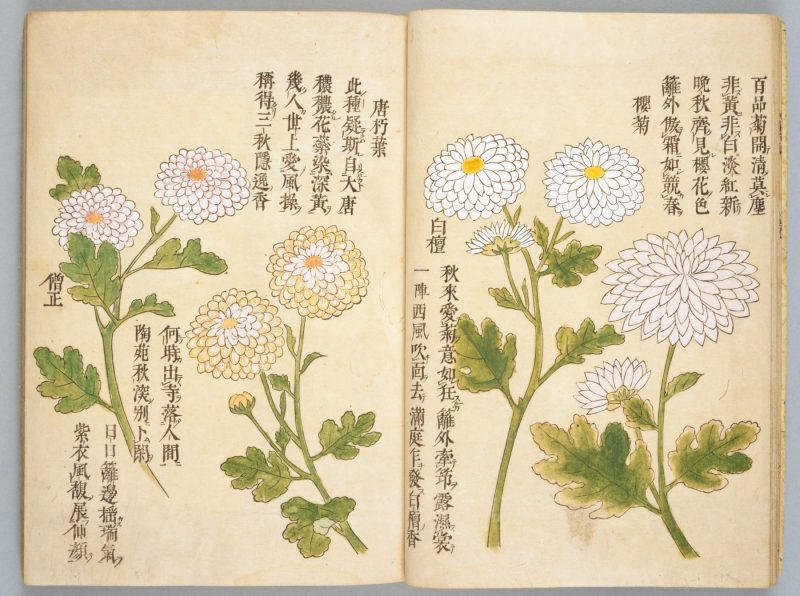 百品菊開清莫塵
非黃非白淡紅新
晩秋齊見櫻花色
籬外傲霜如競春
櫻菊
白檀
秋來愛菊意如狂 籬外牽筇露濕裳
一陣西風吹面去 滿庭乍發白檀香
唐朽葉
此種疑斯自大唐
穠穠花蘂染深黃
幾人世上愛風操
稱得三秋隱逸香
僧正
何時出寺落人間
陶苑秋深別卜閑
日日籬邊揺瑞氣
紫衣風馥展仙顔